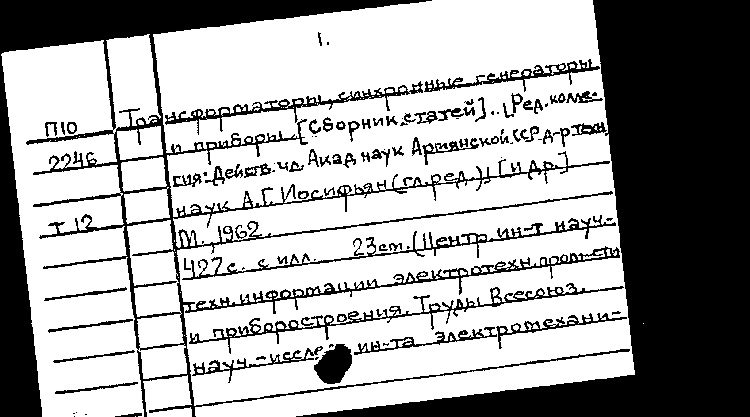 1.
Трансформаторы, синхронные генераторы
П10 и приборы. [Сборник статей]. [Ред. колле-
2246 гия: Действ. чл. Акад. наук Армянской ССР д-р техн.
наук А.Г. Иосифьян (гл. ред.), [и др.]
Т 12 М., 1962.
427 с. с илл. 23 см. (Центр. ин-т науч.-
техн. информации электротехн. пром-сти
и приборостроения. Труды Всесоюз.
науч.-исслед. ин-та электромехани-